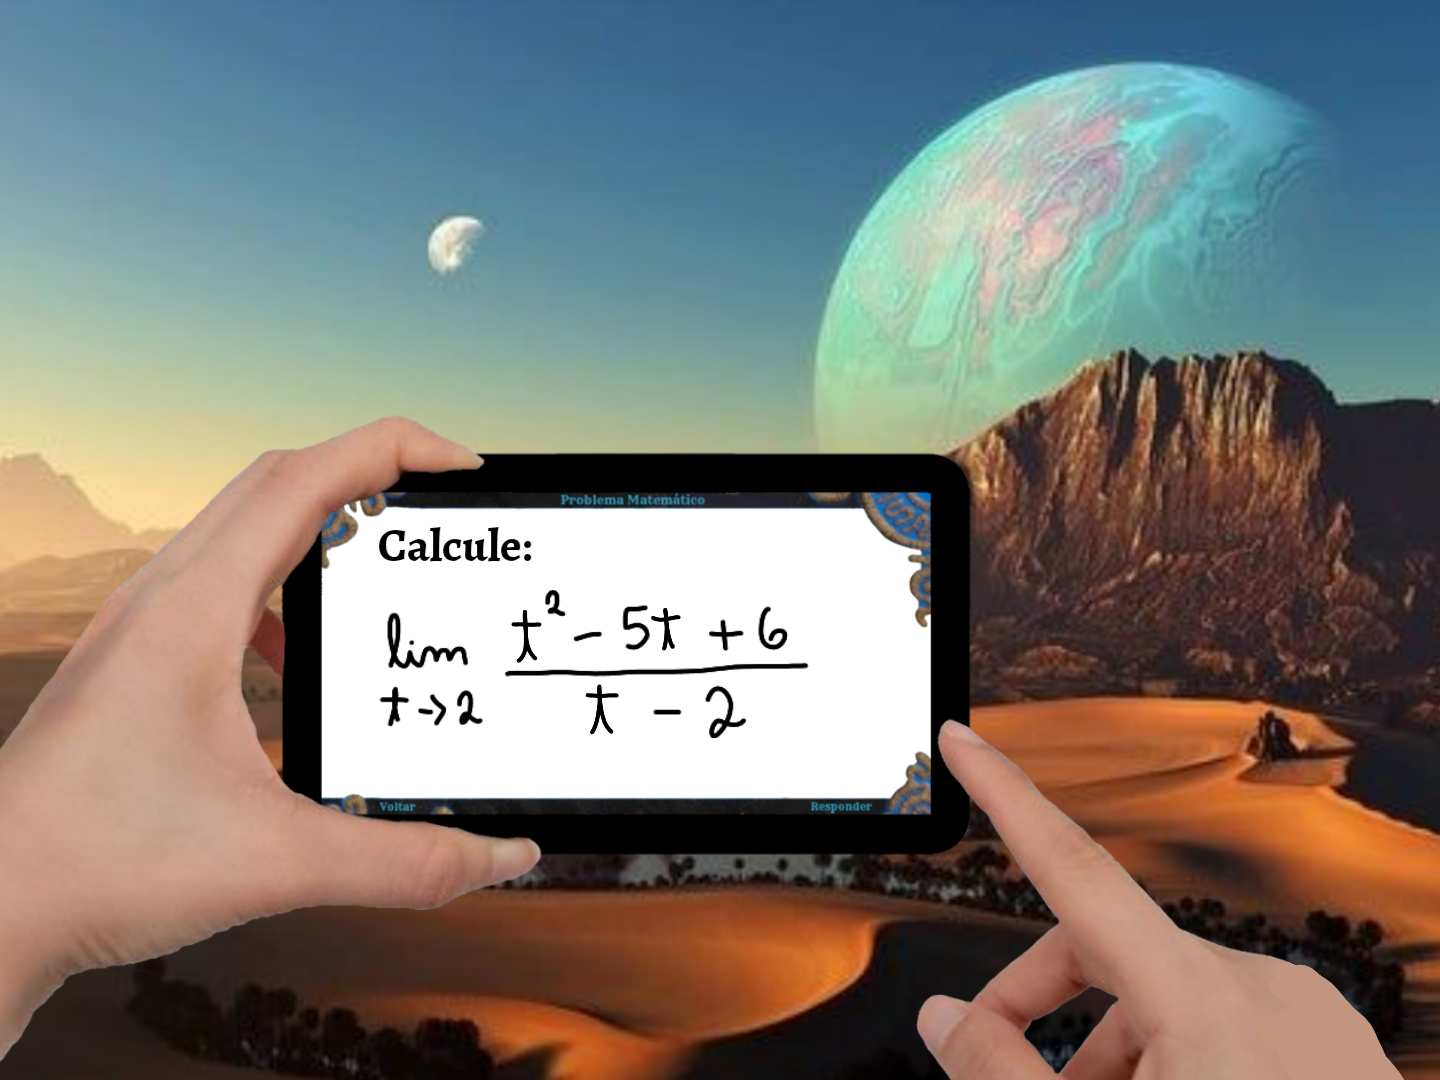 Problema Matemático
Calcule:
lim t→2 (t² - 5t + 6) / (t - 2)
Voltar
Responder